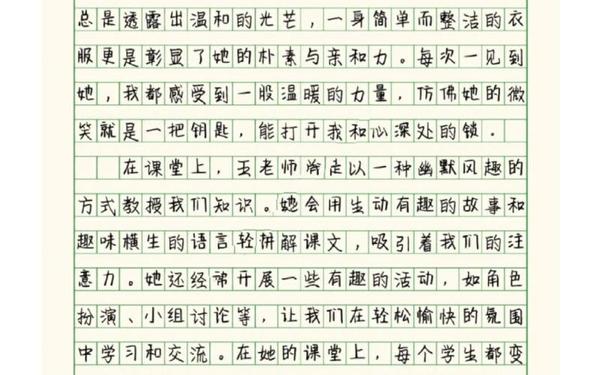 总是透露出温和的光芒，一身简单而整洁的衣
服更是彰显了她的朴素与亲和力。每次一见到
她，我都感受到一股温暖的力量，仿佛她的微
笑就是一把钥匙，能打开我和心深处的锁．
在课堂上，王老师常走以一种幽默风趣的
方式教授我们知识。她会用生动有趣的故事和
趣味横生的语言轻讲解课文，吸引着我们的注
意力。她还经常开展一些有趣的活动，如角色
扮演、小组讨论等，让我们在轻松愉快的氛围
中学习和交流。在她的课堂上，每个学生都变